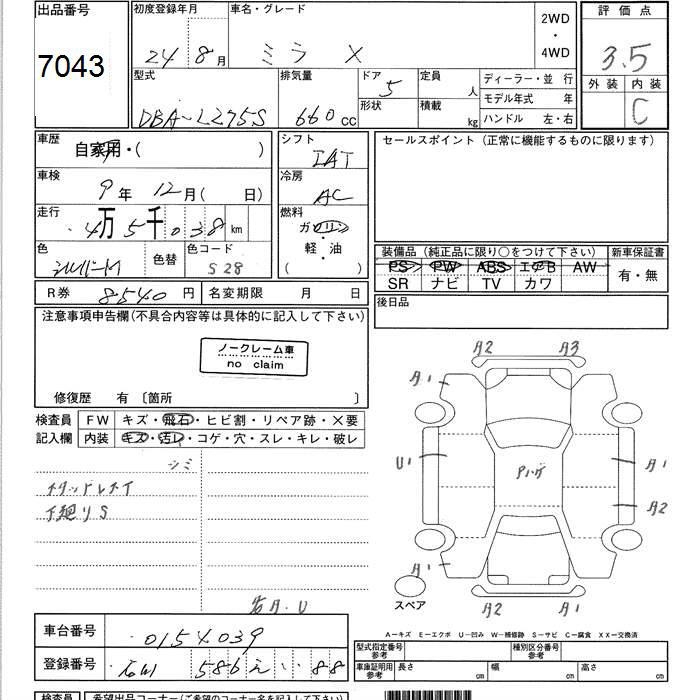 出品番号
7043
初度登録年月
24年 8月
車名・グレード
ミラ X
2WD
・
4WD
評価点
3.5
外装 内装
C
型式
DBA-L275S
排気量
660 cc
ドア 5
形状
定員 人
積載 kg
ディーラー・並 行
モデル年式 年
ハンドル 左・右
車歴
自家用・( )
車検
9年 12月( 日)
走行
4万5千038 km
色
シルバーM
色替
色コード
S28
シフト
IAT
冷房
AC
燃料
ガソリン
軽・油
( )
セールスポイント (正常に機能するものに限ります)
装備品 (純正品に限り○をつけて下さい)
PS PW ABS エアB AW
SR ナビ TV カワ
新車保証書
有・無
R券 8540 円
名変期限 月 日
後日品
注意事項申告欄(不具合内容等は具体的に記入して下さい)
ノークレーム車
no claim
修復歴 有 〔箇所 〕
検査員
記入欄
FW キズ・飛石・ヒビ割・リペア跡・X要
内装 キズ・汚レ・コゲ・穴・スレ・キレ・破レ
シミ
下廻りS
A2 A3
A1
U1
A1
A2
A1 A1
A2 A1
スペア
A-キズ E-エクボ U-凹み W-補修跡 S-サビ C-腐食 XX-交換済
車台番号
0154039
登録番号
石川 586 え ・・88
型式指定番号
参考
種別区分番号
参考
車庫証明用
参考
長さ cm
幅 cm
高さ cm
検査員
希望出品コーナー(ご希望のコーナー名を記入